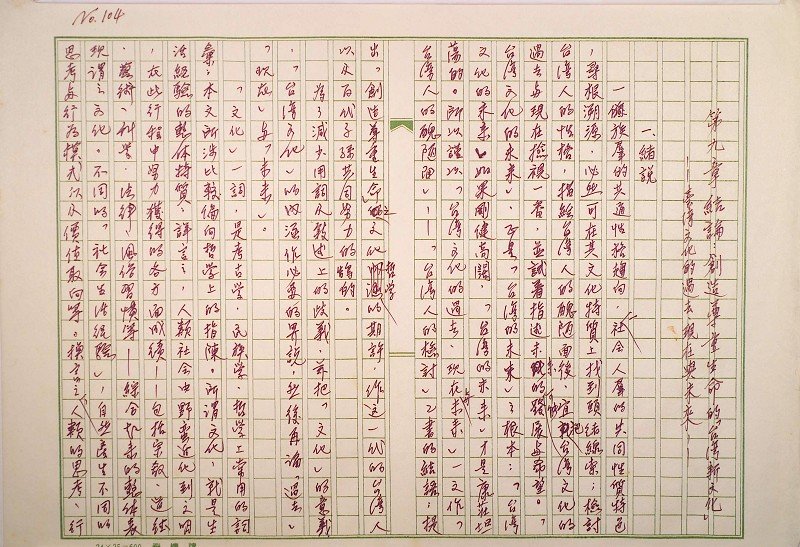 No. 104
第九章 結論：創造尊重生命的「台灣新文化」
——臺灣文化的過去現在與未來——
一、緒說
一個族羣的共通性格趨向，社会人羣的共同性質特色
，尋根溯源，必然可在其文化特質上找到頭緒線索；檢討
台灣人的性格，指給台灣人的醜陋面後，宜把台灣文化的
過去与現在檢視一番，並試著指述未來的發展与希望。
台灣文化的未來，才是「台灣的未來」之根本；「台灣
文化的未來」如果剛健高闊，「台灣的未來」才是康莊坦
蕩的。所以謹以「台灣文化的過去、現在与未來」一文作「
台灣人的醜陋面」——「台灣人的檢討」乙書的結語；提
出「創造尊重生命之文化哲学」的期許，作這一代的台灣人
以及百代子孫共同努力的標的。
為了減少用詞及敘述上的歧義，前把「文化」的意義
，「台灣文化」的內涵作必要的界說，然後再論「過去」
「現在」与「未來」。
「文化」一詞，是考古学、民族学、哲学上常用的詞
彙；本文所涉比較偏向哲学上的指陳。所謂文化，就是生
活經驗的整体特質；詳言之，人類社会由野蛮進化到文明
，在此行程中努力獲得的各方面成績——包括宗教、道德
、藝術、科学、法律、風俗習慣等——綜合起來的整体表
現謂之文化。不同的「社会生活經驗」，自然產生不同的
思考与行為模式以及價值取向等。換言之，人類的思考、行
24×25=600